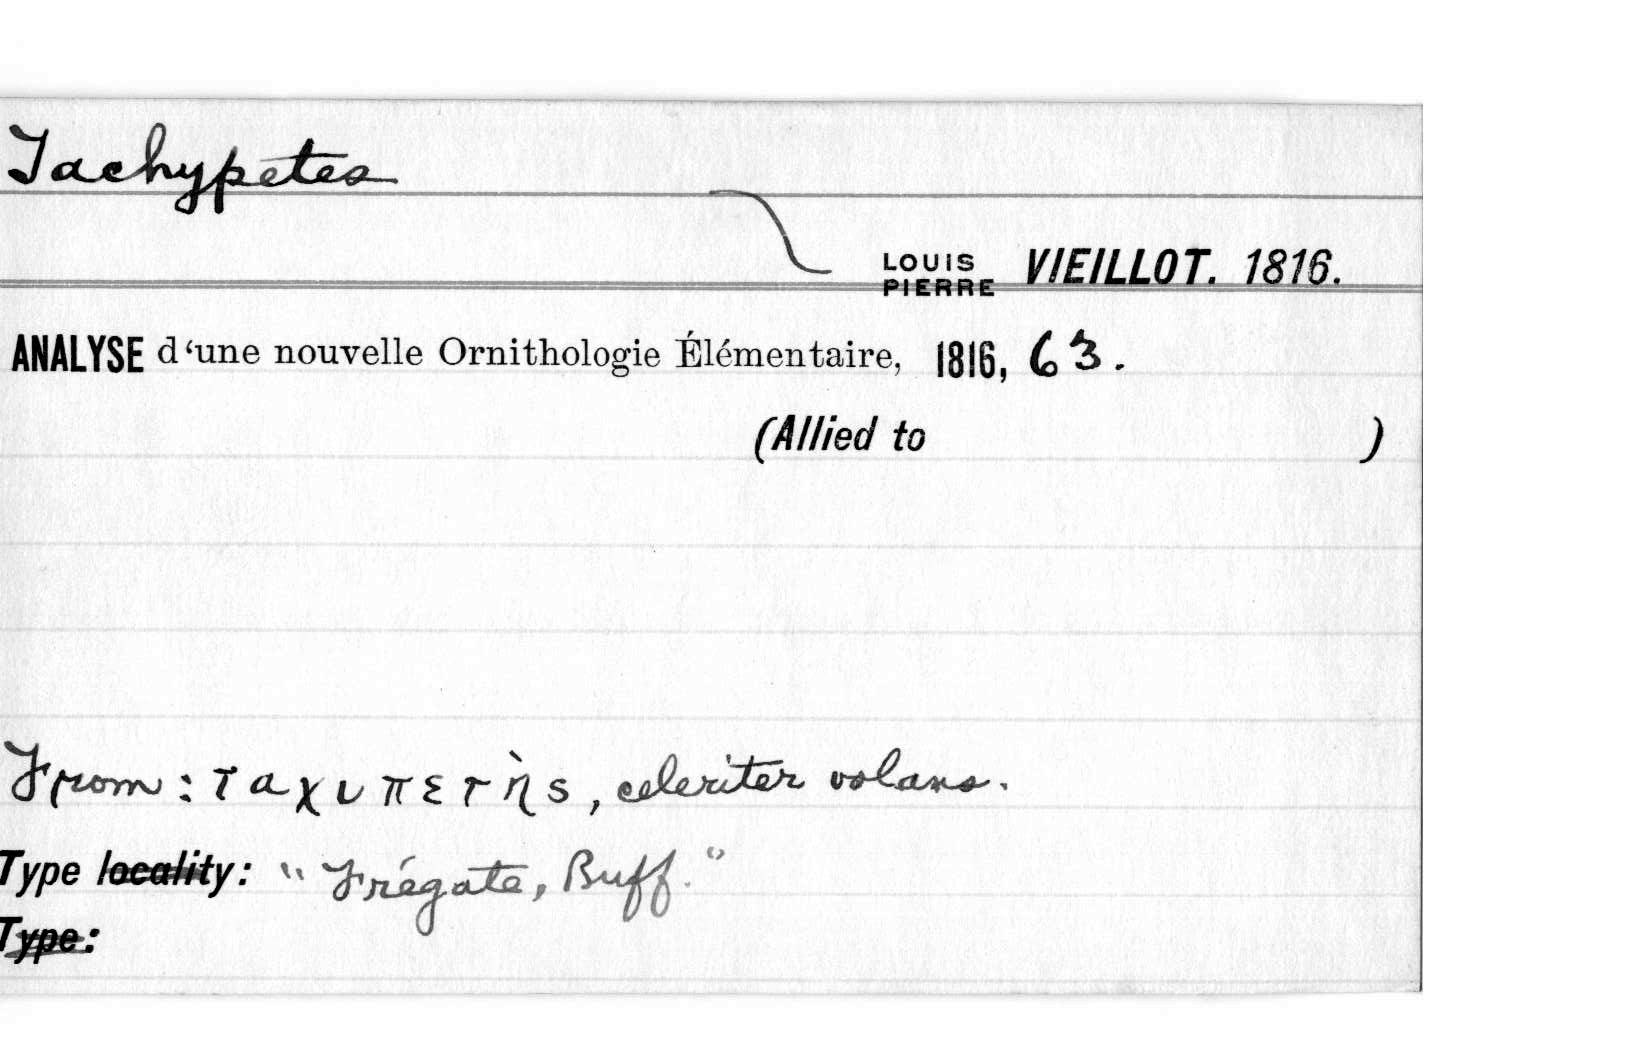 Tachypetes
LOUIS PIERRE VIEILLOT. 1816.
ANALYSE d‘une nouvelle Ornithologie Élémentaire, 1816, 63.
(Allied to )
From: ταχυπετὴς, celeriter volans.
Type locality: "Frégate, Buff."
Type: